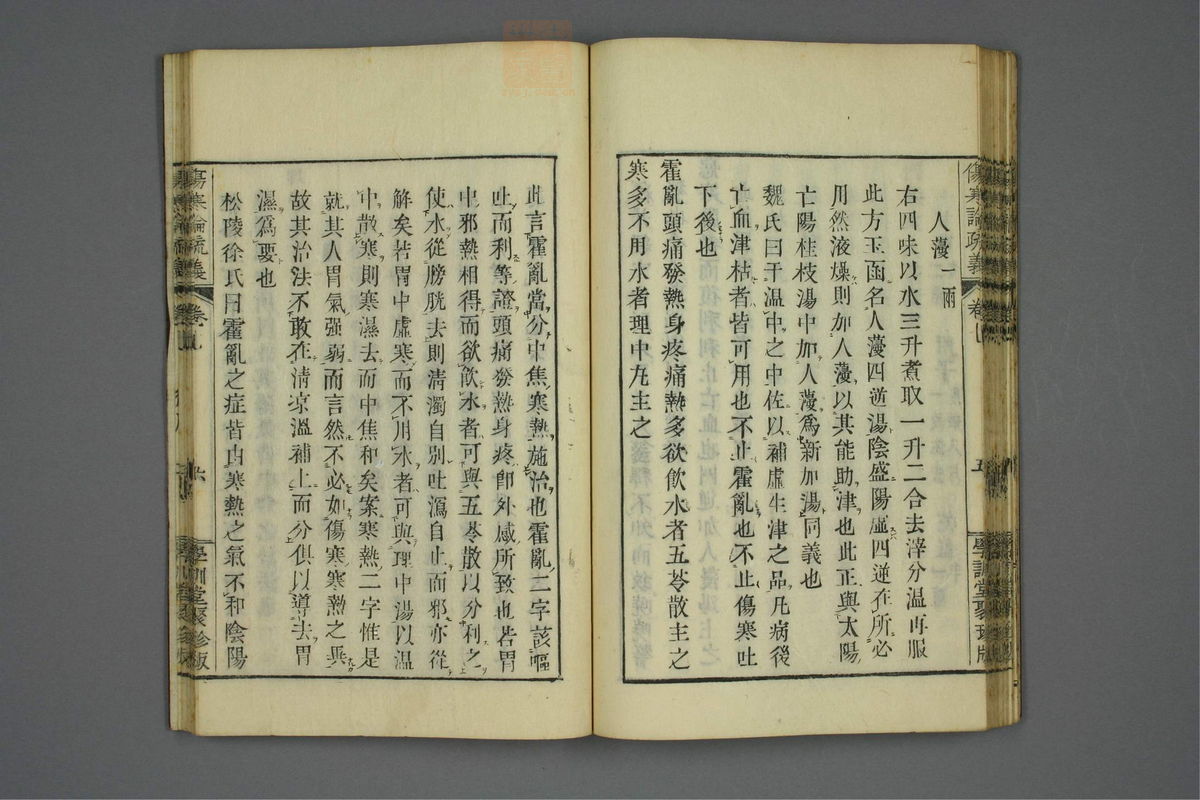 傷寒論疏義
人薓一兩
右四味以水三升煮取一升二合去滓分温再服
此方玉函名人薓四逆湯陰盛陽虛四逆在所必
用然液燥則加人薓以其能助津也此正與太陽
亡陽桂枝湯中加人薓爲新加湯同義也
魏氏曰于温中之中佐以補虛生津之品凡病後
亡血津枯者皆可用也不止霍亂也不止傷寒吐
下後也
霍亂頭痛發熱身疼痛熱多欲飲水者五苓散主之
寒多不用水者理中丸主之
此言霍亂當分中焦寒熱施治也霍亂二字該嘔
吐而利等證頭痛發熱身疼卽外感所致也若胃
中邪熱相得而欲飲水者可與五苓散以分利之
使水從膀胱去則清濁自別吐瀉自止而邪亦從
解矣若胃中虛寒而不用水者可與理中湯以温
中散寒則寒濕去而中焦和矣案寒熱二字惟是
就其人胃氣强弱而言然不必如傷寒寒熱之異
故其治法不敢在清凉溫補上而分俱以導去胃
濕爲要也
松陵徐氏曰霍亂之症皆由寒熱之氣不和陰陽